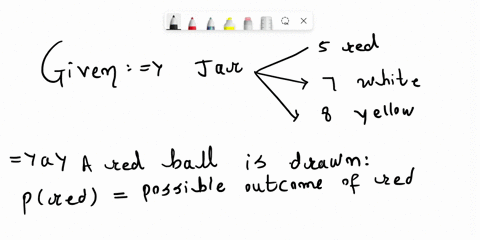 Given :=> Jar
5 red
7 white
8 yellow
=> a> A red ball is drawn:
P(red) = possible outcome of red